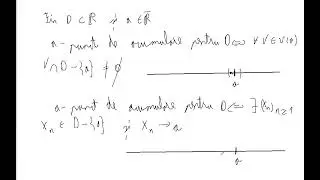 Fie D ⊂ ℝ și a ∈ ℝ̄
a - punct de acumulare pentru D ⇔ ∀ V ∈ V(a)
V ∩ D - {a} ≠ ∅
a
a - punct de acumulare pentru D ⇔ ∃ (xₙ)ₙ≥₁
xₙ ∈ D - {a} și xₙ → a
a